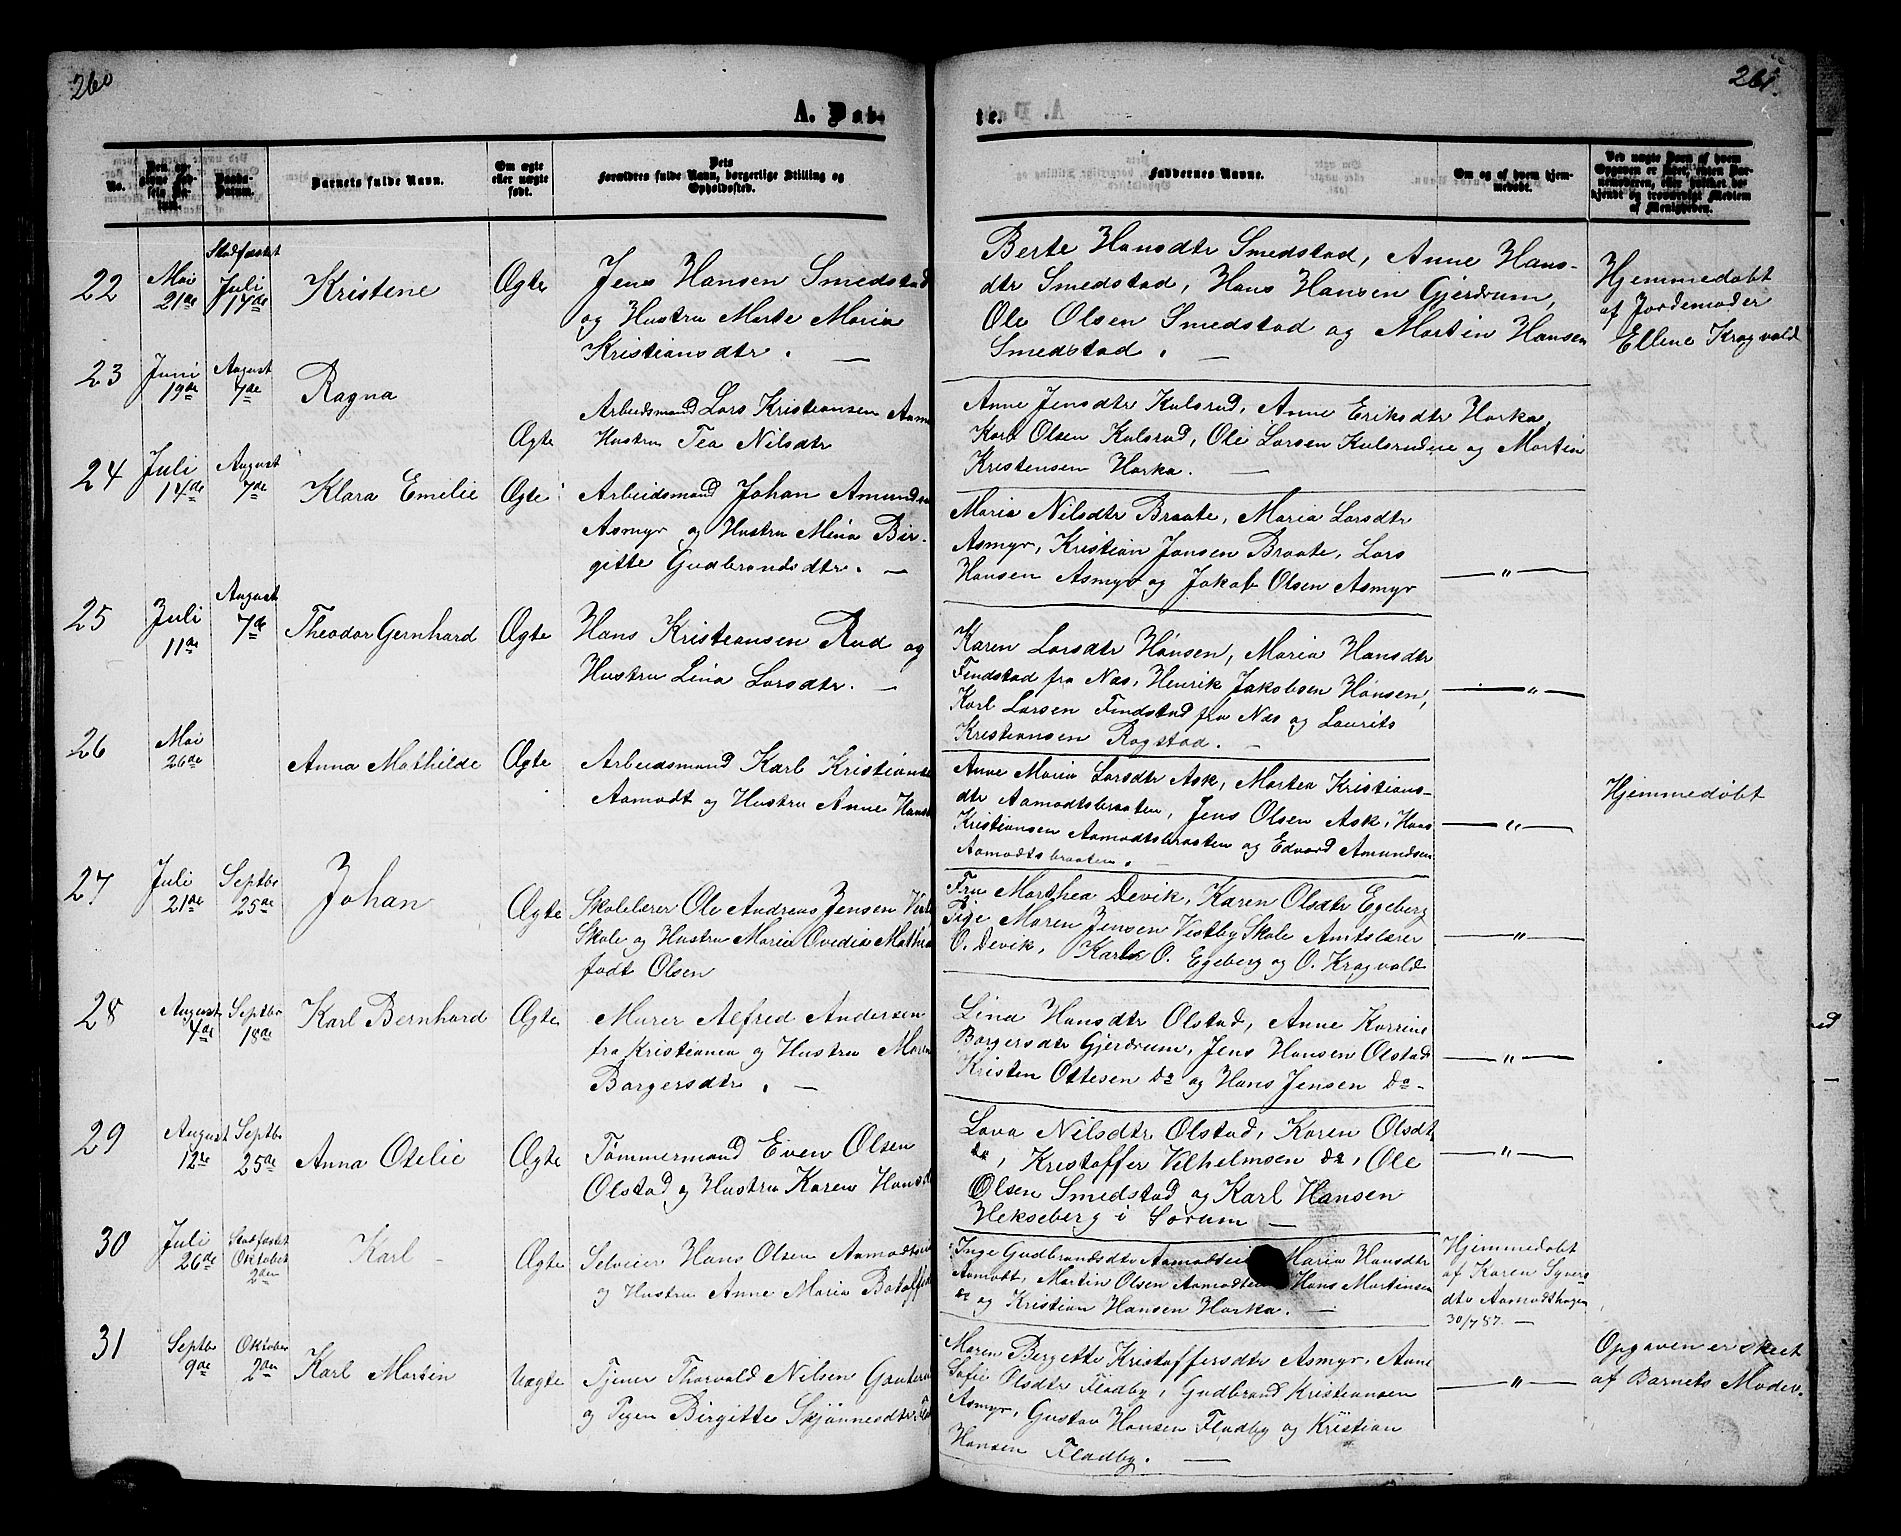 260
261.
A. Døb-
te.
No.
Den opgivne Fødsels Datum.
Daabs-Datum.
Barnets fulde Navn.
Om ægte eller uægte født.
Dets Forældres fulde Navn, borgerlige Stilling og Opholdssted.
Faddernes Navne.
Om og af hvem hjemmedøbt.
Ved uægte Børn af hvem Opgaven er skeet
22
Mai 21de
Stadfæstet Juli 17de
Kristene
Ægte
Jens Hansen Smedstad
og Hustru Marte Maria
Kristiansdtr. —
Berte Hansdtr Smedstad, Anne Hans-
dtr Smedstad, Hans Hansen Gjerdrum,
Ole Olsen Smedstad og Martin Hansen
Smedstad. —
Hjemmedøbt
af Jordemoder
Ellene Kragvald
23
Juni 19de
August 7de
Ragna
Ægte
Arbeidsmand Lars Kristiansen
Hustru Tea Nilsdtr
Anne Jensdtr Kulsrud, Anne Eriksdtr Harka,
Karl Olsen Kulsrud, Ole Larsen Kulsrudeie og Martin
Kristensen Harka. —
24
Juli 14de
August 7de
Klara Emelie
Ægte
Arbeidsmand Johan Amundsen
Asmyr og Hustru Mina Bir-
gitte Gudbrandsdtr. —
Maria Nilsdtr Braate, Maria Larsdtr
Asmyr, Kristian Jansen Braate, Lars
Hansen Asmyr og Jakob Olsen Asmyr
— " —
25
Juli 11de
August 7de
Theodor Gernhard
Ægte
Hans Kristiansen Rud og
Hustru Lina Larsdtr. —
Karen Larsdtr Hønsen, Maria Hansdtr
Findstad fra Næs, Henrik Jakobsen Hønsen,
Karl Larsen Findstad fra Næs og Laurits
Kristiansen Ragstad. —
— " —
26
Mai 26de
Anna Mathilde
Ægte
Arbeidsmand Karl Kristianse
Aamodt og Hustru Anne Hansd
Anne Maria Larsdtr Ask, Martea Kristians-
dtr Aamodtsbraaten, Jens Olsen Ask, Hans
Kristiansen Aamodtsbraaten og Edvard Amundsen
Aamodtsbraaten. —
— " —
Hjemmedøbt
27
Juli 21de
Septbr 25de
Johan
Ægte
Skolelærer Ole Andreas Jensen
Skole og Hustru Maria Ovedia
født Olsen
Fru Marthea Devik, Karen Olsdtr Egeberg
Pige Maren Jensen Vestby Skole Amtslærer
O. Devik, Karl O. Egeberg og O. Kragvald
— " —
28
August 4de
Septbr 18de
Karl Bernhard
Ægte
Murer Alfred Andersen
fra Kristiania og Hustru Maren
Borgersdtr. —
Lina Hansdtr Olstad, Anne Karrine
Borgersdtr Gjerdrum, Jens Hansen Olstad
Kristen Ottesen do og Hans Jensen do -
— " —
29
August 12te
Septbr 25de
Anna Otelie
Ægte
Tømmermand Even Olsen
Olstad og Hustru Karen Hansd
Lava Nilsdtr Olstad, Karen Olsdtr
do, Kristoffer Vilhelmsen do, Ole
Olsen Smedstad og Karl Hansen
Hekseberg i Sørum —
— " —
30
Juli 26de
Stadfæstet Oktober 2den
Karl
Ægte
Selveier Hans Olsen
og Hustru Anne Maria
Inge Gudbrandsdtr Maria Hansdtr
Aamodt, Martin Olsen Hans Martinsen
do og Kristian Hansen Harka. —
Hjemmedøbt
af Karen Syvers
dtr Aamodthagen
30/7 87. —
31
Septbr 9de
Oktober 2den
Karl Martin
Uægte
Tjener Thorvald Nilsen
og Pigen Birgitte Skjønnesdtr
Maren Bergette Kristoffersdtr Asmyr, Anne
Sofie Olsdtr Fladby, Gudbrand Kristiansen
Asmyr, Gustav Hansen Fladby og Kristian
Hansen Fladby. —
— " —
Opgaven er skeet
af Barnets Moder.